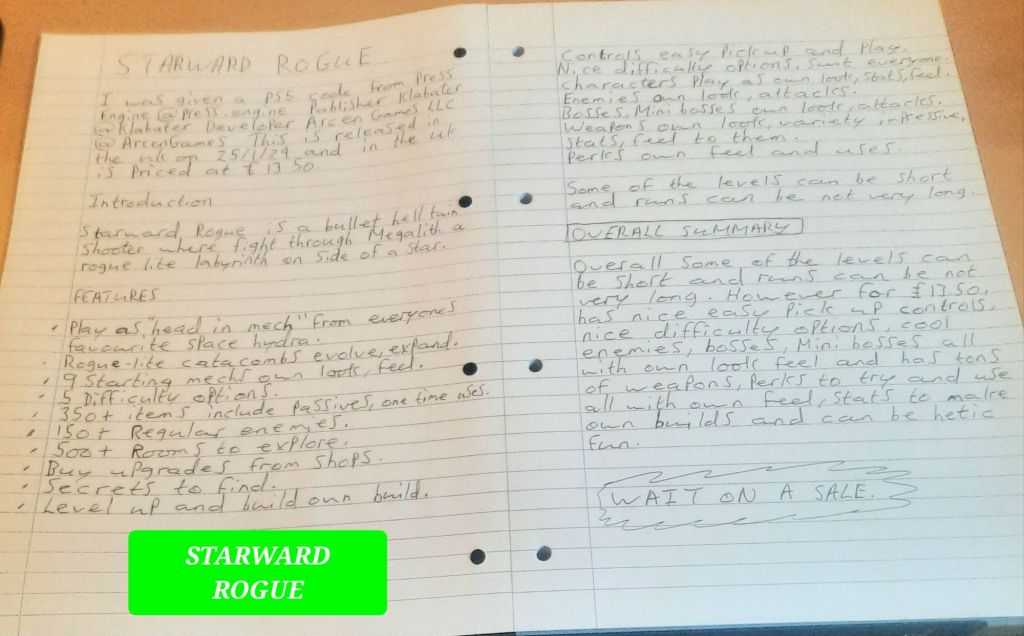 STARWARD ROGUE
I was given a PS5 code from Press
Engine @Press_engine Publisher Klabater
@Klabater Developer Arcen Games LLC
@ArcenGames This is released in
the uk on 25/1/24 and in the uk
is Priced at £13.50.
Introduction
Starward Rogue is a bullet hell twin
shooter where fight through Megalith a
rogue lite labyrinth on side of a star.
FEATURES
• Play as "head in mech" from everyones
favourite space hydra.
• Rogue-lite catacombs evolve, expand.
• 9 Starting mechs own look, feel.
• 5 Difficulty options.
• 350+ items include passives, one time uses.
• 150+ Regular enemies.
• 500+ Rooms to explore.
• Buy upgrades from shops.
• Secrets to find.
• Level up and build own build.
STARWARD
ROGUE
Controls easy Pick up and Play.
Nice difficulty options, suit everyone.
Characters Play as own look, stats, feel.
Enemies own look, attacks.
Bosses, Mini bosses own look, attacks.
Weapons own look, variety impressive,
stats, feel to them.
Perks own feel and uses.
Some of the levels can be short
and runs can be not very long.
OVERALL SUMMARY
Overall some of the levels can
be short and runs can be not
very long. However for £13.50,
has nice easy Pick up controls,
nice difficulty options, cool
enemies, bosses, Mini bosses all
with own look feel and has tons
of weapons, Perks to try and use
all with own feel, stats to make
own builds and can be hetic
fun.
WAIT ON A SALE.